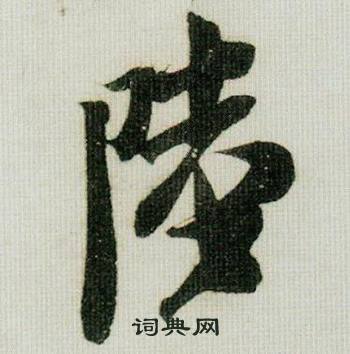 陸
词典网